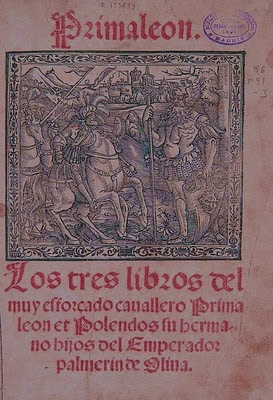 R 12549
Primaleon.
MADRID
Los tres libros del
muy esforçado cauallero Prima
leon et Polendos su herma-
no hijos del Emperador
palmerin de Oliua.